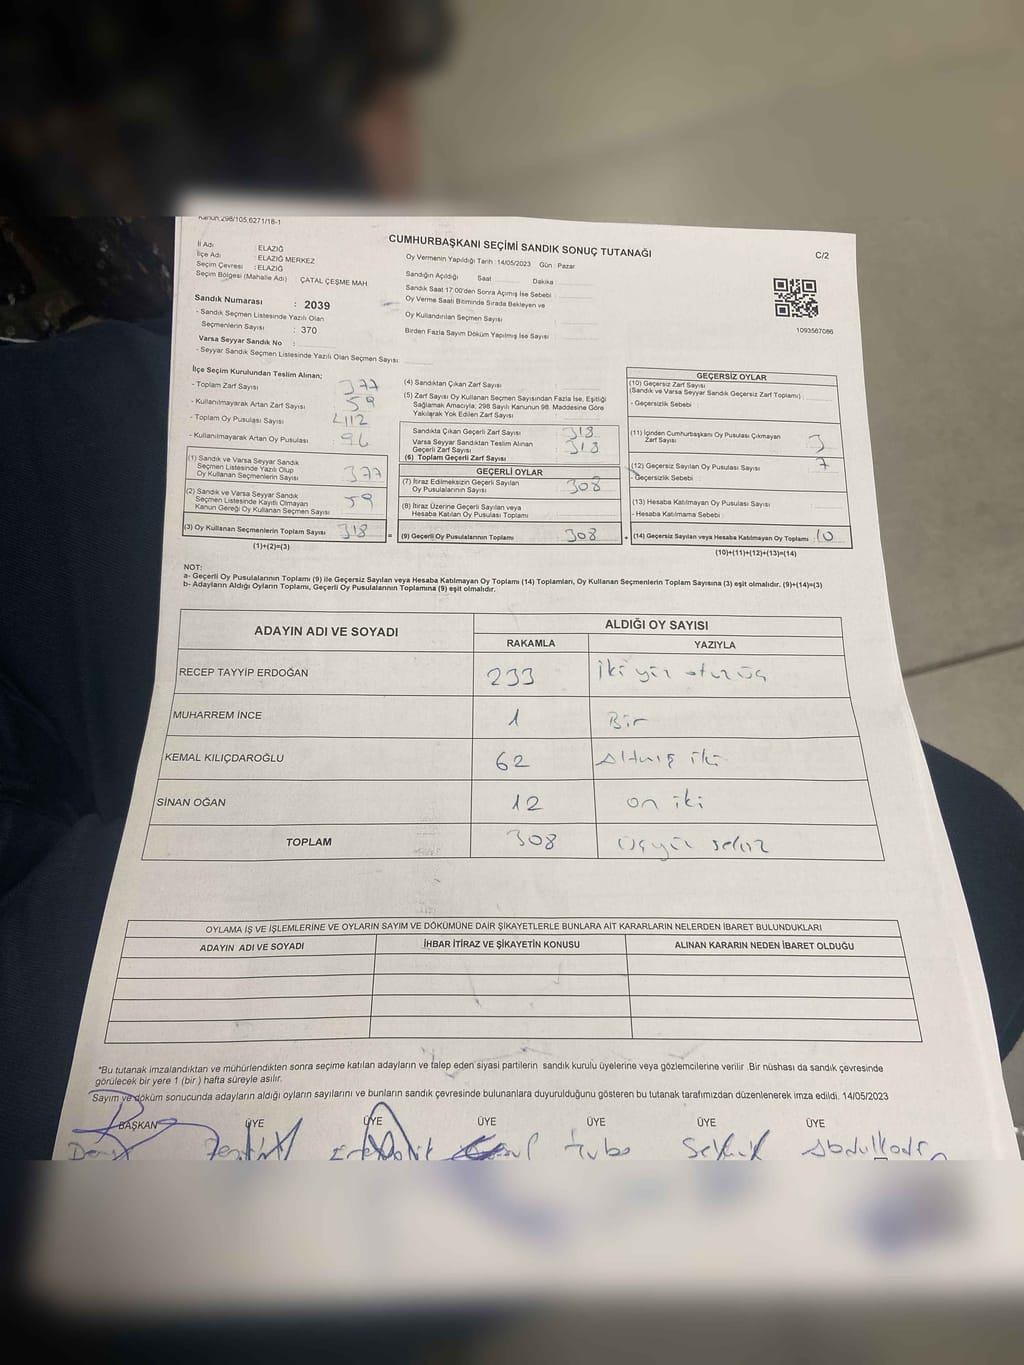 Kanun:298/105,6271/18-1
CUMHURBAŞKANI SEÇİMİ SANDIK SONUÇ TUTANAĞI
C/2
İl Adı : ELAZIĞ
İlçe Adı : ELAZIĞ MERKEZ
Seçim Çevresi : ELAZIĞ
Seçim Bölgesi (Mahalle Adı) ÇATAL ÇEŞME MAH
Sandık Numarası : 2039
- Sandık Seçmen Listesinde Yazılı Olan
Seçmenlerin Sayısı : 370
Varsa Seyyar Sandık No :
- Seyyar Sandık Seçmen Listesinde Yazılı Olan Seçmen Sayısı:
Oy Vermenin Yapıldığı Tarih :14/05/2023 Gün : Pazar
Sandığın Açıldığı Saat Dakika
Sandık Saat 17:00'den Sonra Açımış İse Sebebi
Oy Verme Saati Bitiminde Sırada Bekleyen ve
Oy Kullandırılan Seçmen Sayısı
Birden Fazla Sayım Döküm Yapılmış İse Sayısı
1093567086
İlçe Seçim Kurulundan Teslim Alınan;
- Toplam Zarf Sayısı 377
- Kullanılmayarak Artan Zarf Sayısı 59
- Toplam Oy Pusulası Sayısı 412
- Kullanılmayarak Artan Oy Pusulası 96
(1) Sandık ve Varsa Seyyar Sandık
Seçmen Listesinde Yazılı Olup
Oy Kullanan Seçmenlerin Sayısı 377
(2) Sandık ve Varsa Seyyar Sandık
Seçmen Listesinde Kayıtlı Olmayan
Kanun Gereği Oy Kullanan Seçmen Sayısı 59
(3) Oy Kullanan Seçmenlerin Toplam Sayısı 318 =
(1)+(2)=(3)
(4) Sandıktan Çıkan Zarf Sayısı
(5) Zarf Sayısı Oy Kullanan Seçmen Sayısından Fazla İse, Eşitliği
Sağlamak Amacıyla; 298 Sayılı Kanunun 98. Maddesine Göre
Yakılarak Yok Edilen Zarf Sayısı
Sandıkta Çıkan Geçerli Zarf Sayısı 318
Varsa Seyyar Sandıktan Teslim Alınan
Geçerli Zarf Sayısı 318
(6) Toplam Geçerli Zarf Sayısı
GEÇERLİ OYLAR
(7) İtiraz Edilmeksizin Geçerli Sayılan
Oy Pusulalarının Sayısı 308
(8) İtiraz Üzerine Geçerli Sayılan veya
Hesaba Katılan Oy Pusulası Toplamı
(9) Geçerli Oy Pusulalarının Toplamı 308 +
GEÇERSİZ OYLAR
(10) Geçersiz Zarf Sayısı
(Sandık ve Varsa Seyyar Sandık Geçersiz Zarf Toplamı)
- Geçersizlik Sebebi :
(11) İçinden Cumhurbaşkanı Oy Pusulası Çıkmayan
Zarf Sayısı 3
(12) Geçersiz Sayılan Oy Pusulası Sayısı 7
- Geçersizlik Sebebi :
(13) Hesaba Katılmayan Oy Pusulası Sayısı
- Hesaba Katılmama Sebebi :
(14) Geçersiz Sayılan veya Hesaba Katılmayan Oy Toplamı : 10
(10)+(11)+(12)+(13)=(14)
NOT:
a- Geçerli Oy Pusulalarının Toplamı (9) ile Geçersiz Sayılan veya Hesaba Katılmayan Oy Toplamı (14) Toplamları, Oy Kullanan Seçmenlerin Toplam Sayısına (3) eşit olmalıdır. (9)+(14)=(3)
b- Adayların Aldığı Oyların Toplamı, Geçerli Oy Pusulalarının Toplamına (9) eşit olmalıdır.
ADAYIN ADI VE SOYADI
ALDIĞI OY SAYISI
RAKAMLA YAZIYLA
RECEP TAYYİP ERDOĞAN 233 İki yüz otuz üç
MUHARREM İNCE 1 Bir
KEMAL KILIÇDAROĞLU 62 Altmış iki
SİNAN OĞAN 12 on iki
TOPLAM 308 üçyüz sekiz
OYLAMA İŞ VE İŞLEMLERİNE VE OYLARIN SAYIM VE DÖKÜMÜNE DAİR ŞİKAYETLERLE BUNLARA AİT KARARLARIN NELERDEN İBARET BULUNDUKLARI
ADAYIN ADI VE SOYADI İHBAR İTİRAZ VE ŞİKAYETİN KONUSU ALINAN KARARIN NEDEN İBARET OLDUĞU
*Bu tutanak imzalandıktan ve mühürlendikten sonra seçime katılan adayların ve talep eden siyasi partilerin sandık kurulu üyelerine veya gözlemcilerine verilir .Bir nüshası da sandık çevresinde
görülecek bir yere 1 (bir ) hafta süreyle asılır.
Sayım ve döküm sonucunda adayların aldığı oyların sayılarını ve bunların sandık çevresinde bulunanlara duyurulduğunu gösteren bu tutanak tarafımızdan düzenlenerek imza edildi. 14/05/2023
BAŞKAN ÜYE ÜYE ÜYE ÜYE ÜYE ÜYE
Tuba Abdulkadir